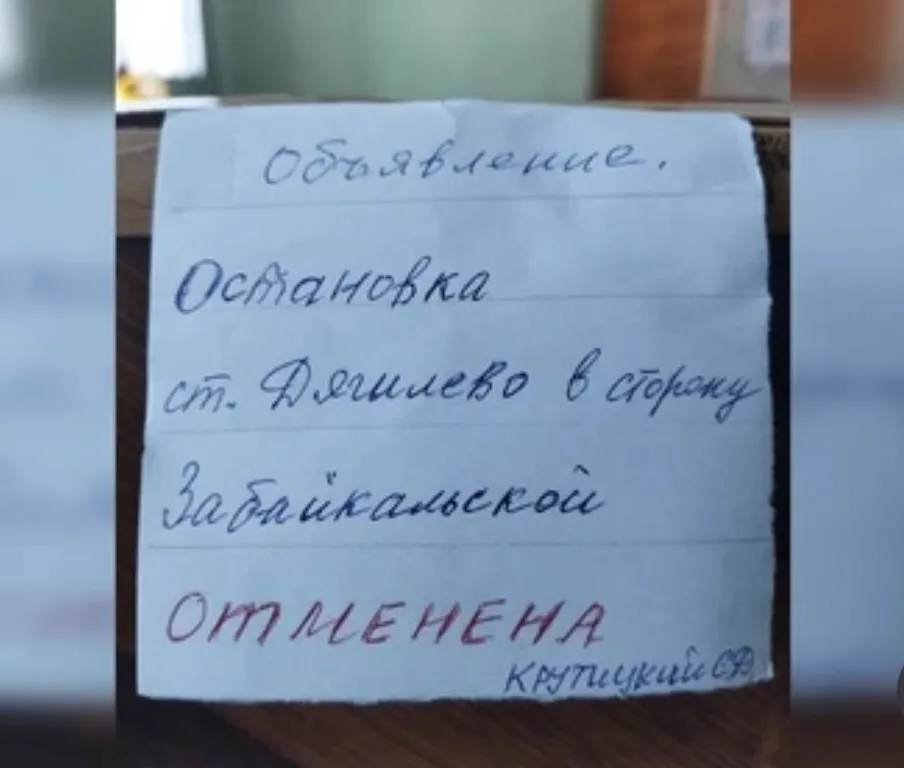 Объявление.
Остановка
ст. Дягилево в сторону
Забайкальской
ОТМЕНЕНА
КРУТИЦКИЙ СД